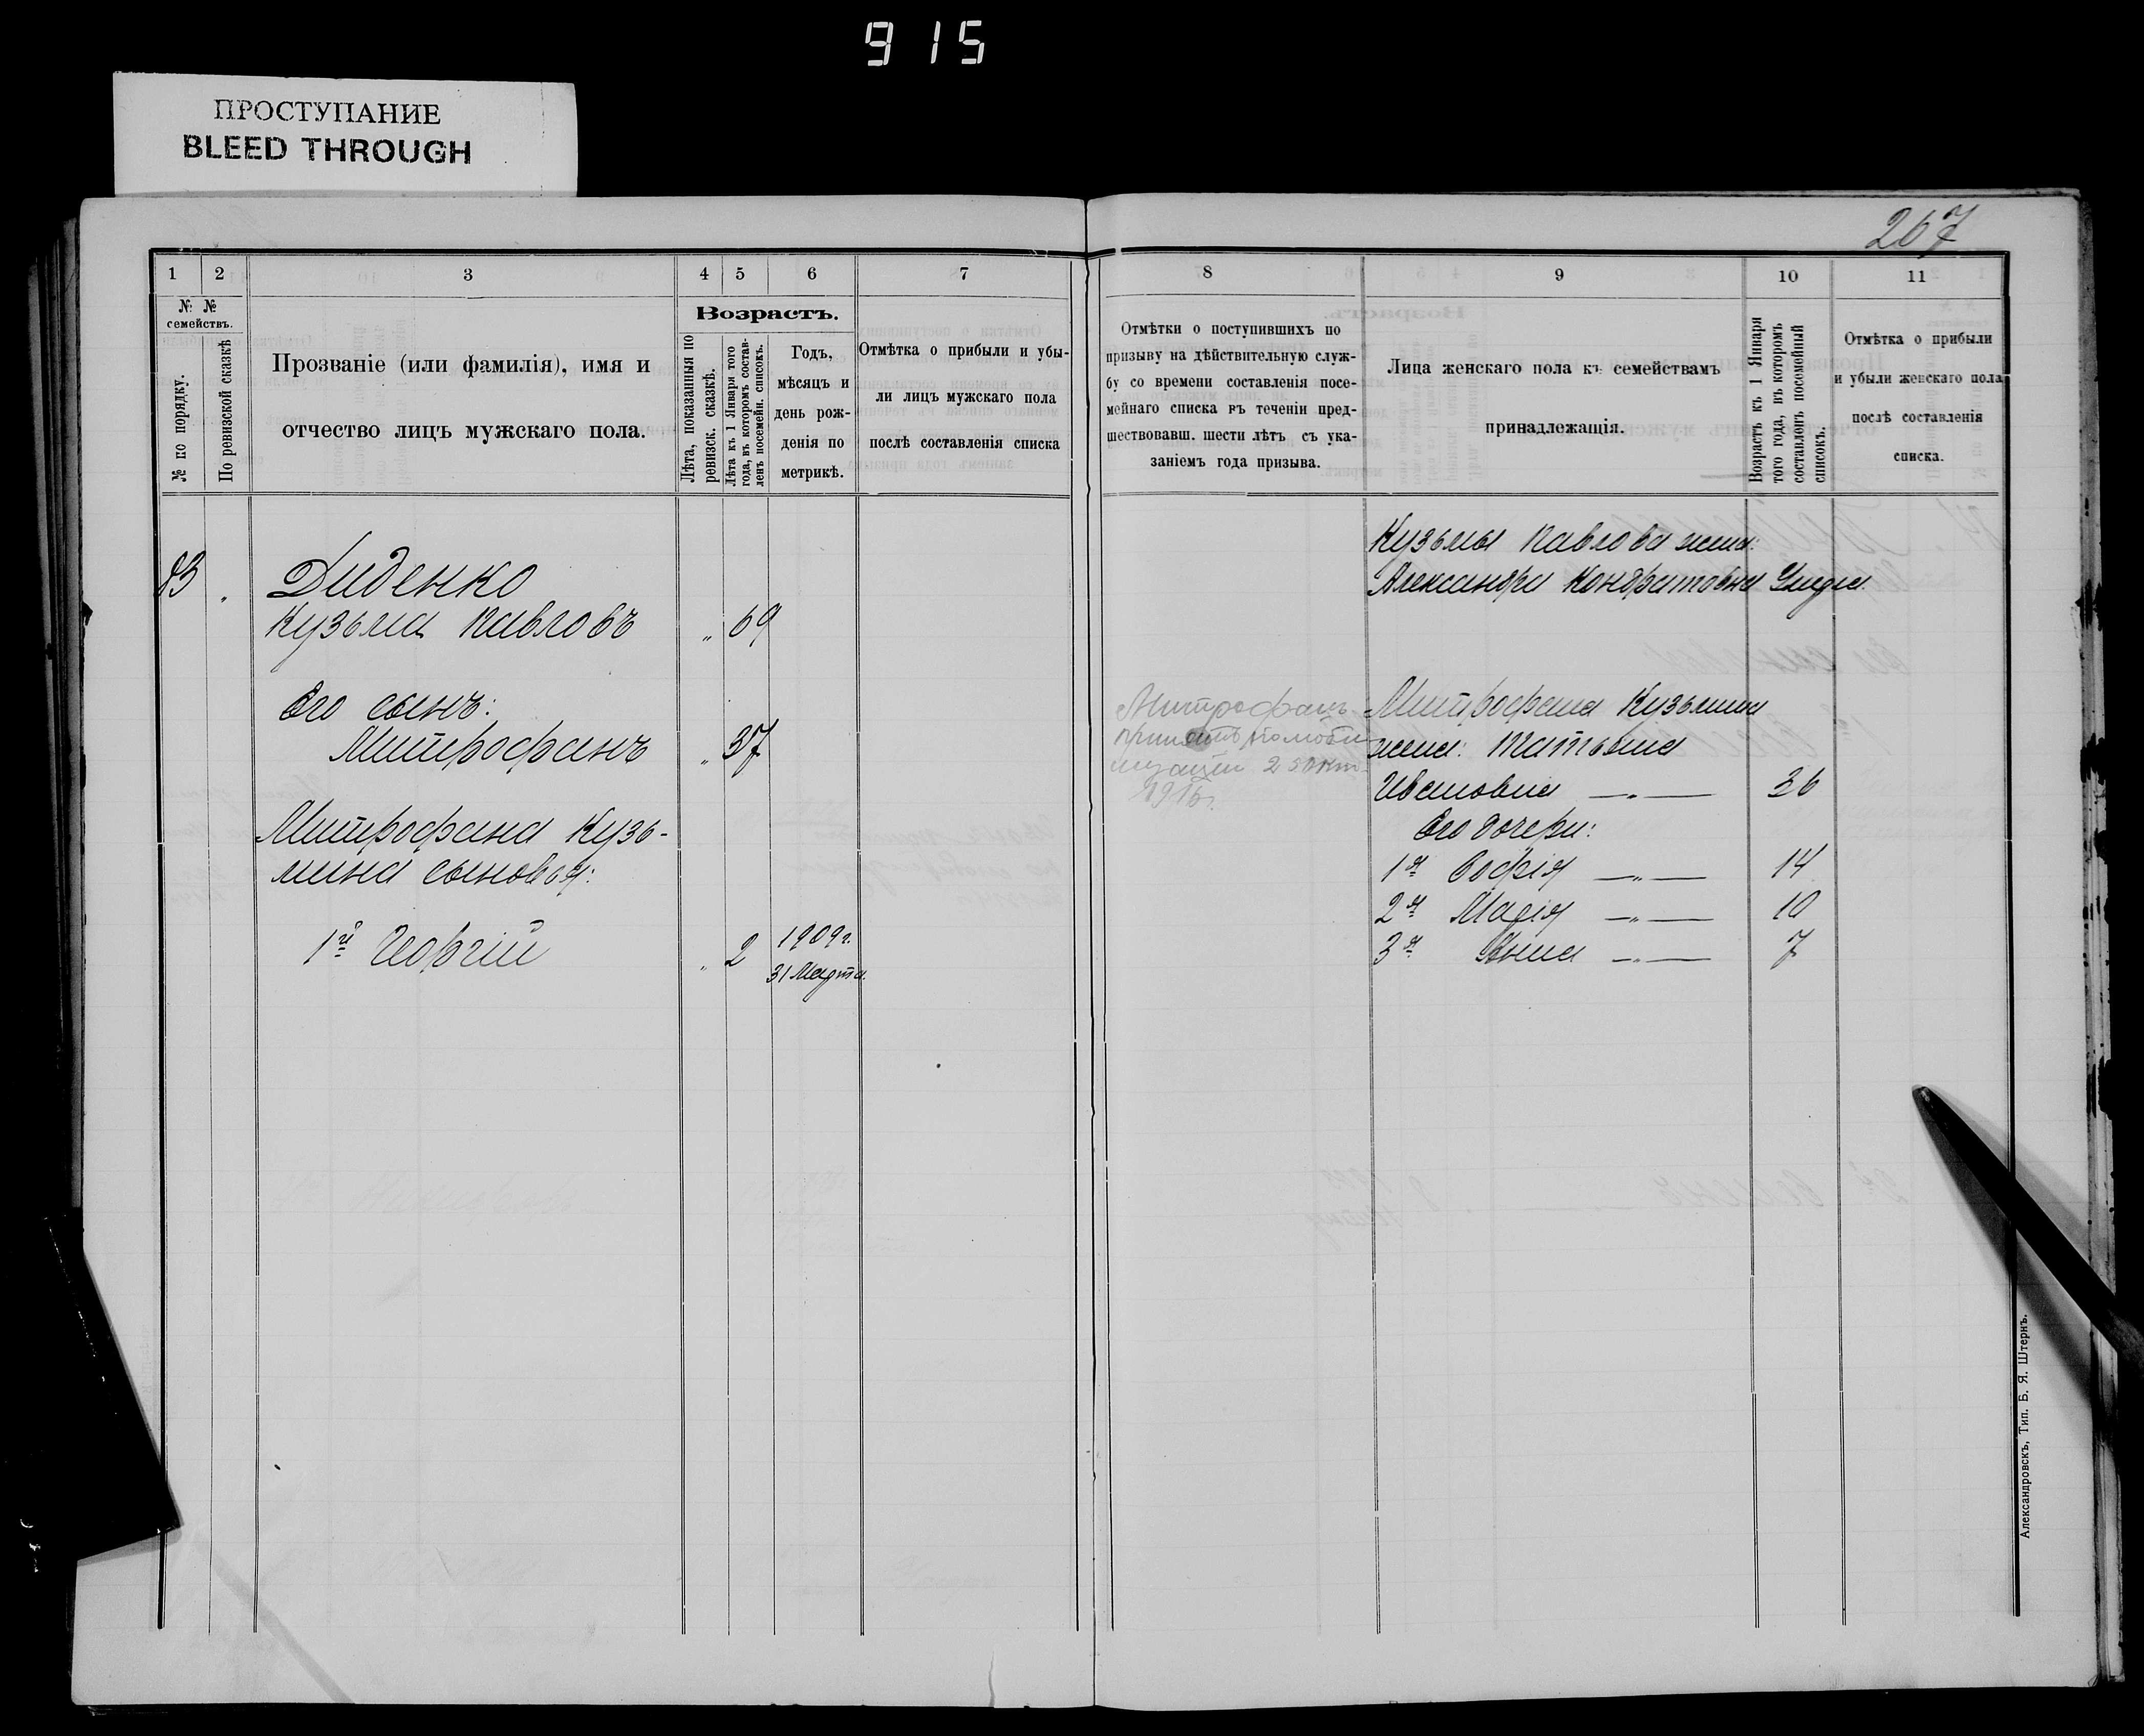 915
ПРОСТУПАНИЕ
BLEED THROUGH
267
1 2 3 4 5 6 7
№ № семействъ.
№ по порядку.
По ревизской сказкѣ
Прозваніе (или фамилія), имя и
отчество лицъ мужскаго пола.
Возрастъ.
Лѣта, показанныя по
ревизск. сказкѣ.
Лѣта къ 1 Января того
года, въ которомъ состав-
ленъ посемейн. списокъ.
Годъ,
мѣсяцъ и
день рож-
денія по
метрикѣ.
Отмѣтка о прибыли и убы-
ли лицъ мужскаго пола
послѣ составленія списка
83 „ Диденко
Кузьма Павловъ „ 69
Его сынъ:
Митрофанъ „ 37
Митрофана Кузь-
мина сыновья:
1й Георгій „ 2 1909 г.
31 Марта.
8 9 10 11
Отмѣтки о поступившихъ по
призыву на дѣйствительную служ-
бу со времени составленія посе-
мейнаго списка въ теченіи пред-
шествовавш. шести лѣтъ съ ука-
заніемъ года призыва.
Лица женскаго пола къ семействамъ
принадлежащія.
Возрастъ къ 1 Января
того года, въ которомъ
составленъ посемейный
списокъ.
Отмѣтка о прибыли
и убыли женскаго пола
послѣ составленія
списка.
Кузьмы Павлова жена:
Александра Кондратовна Умерла.
Митрофанъ
принятъ по моби
лизаціи 25 окт.
1916 г.
Митрофана Кузьмина
жена: Татьяна
Ивановна —„— 36
Его дочери:
1я Софія —„— 14
2я Марія —„— 10
3я Анна —„— 7
Александровскъ, Тип. Б. Я. Штернъ.